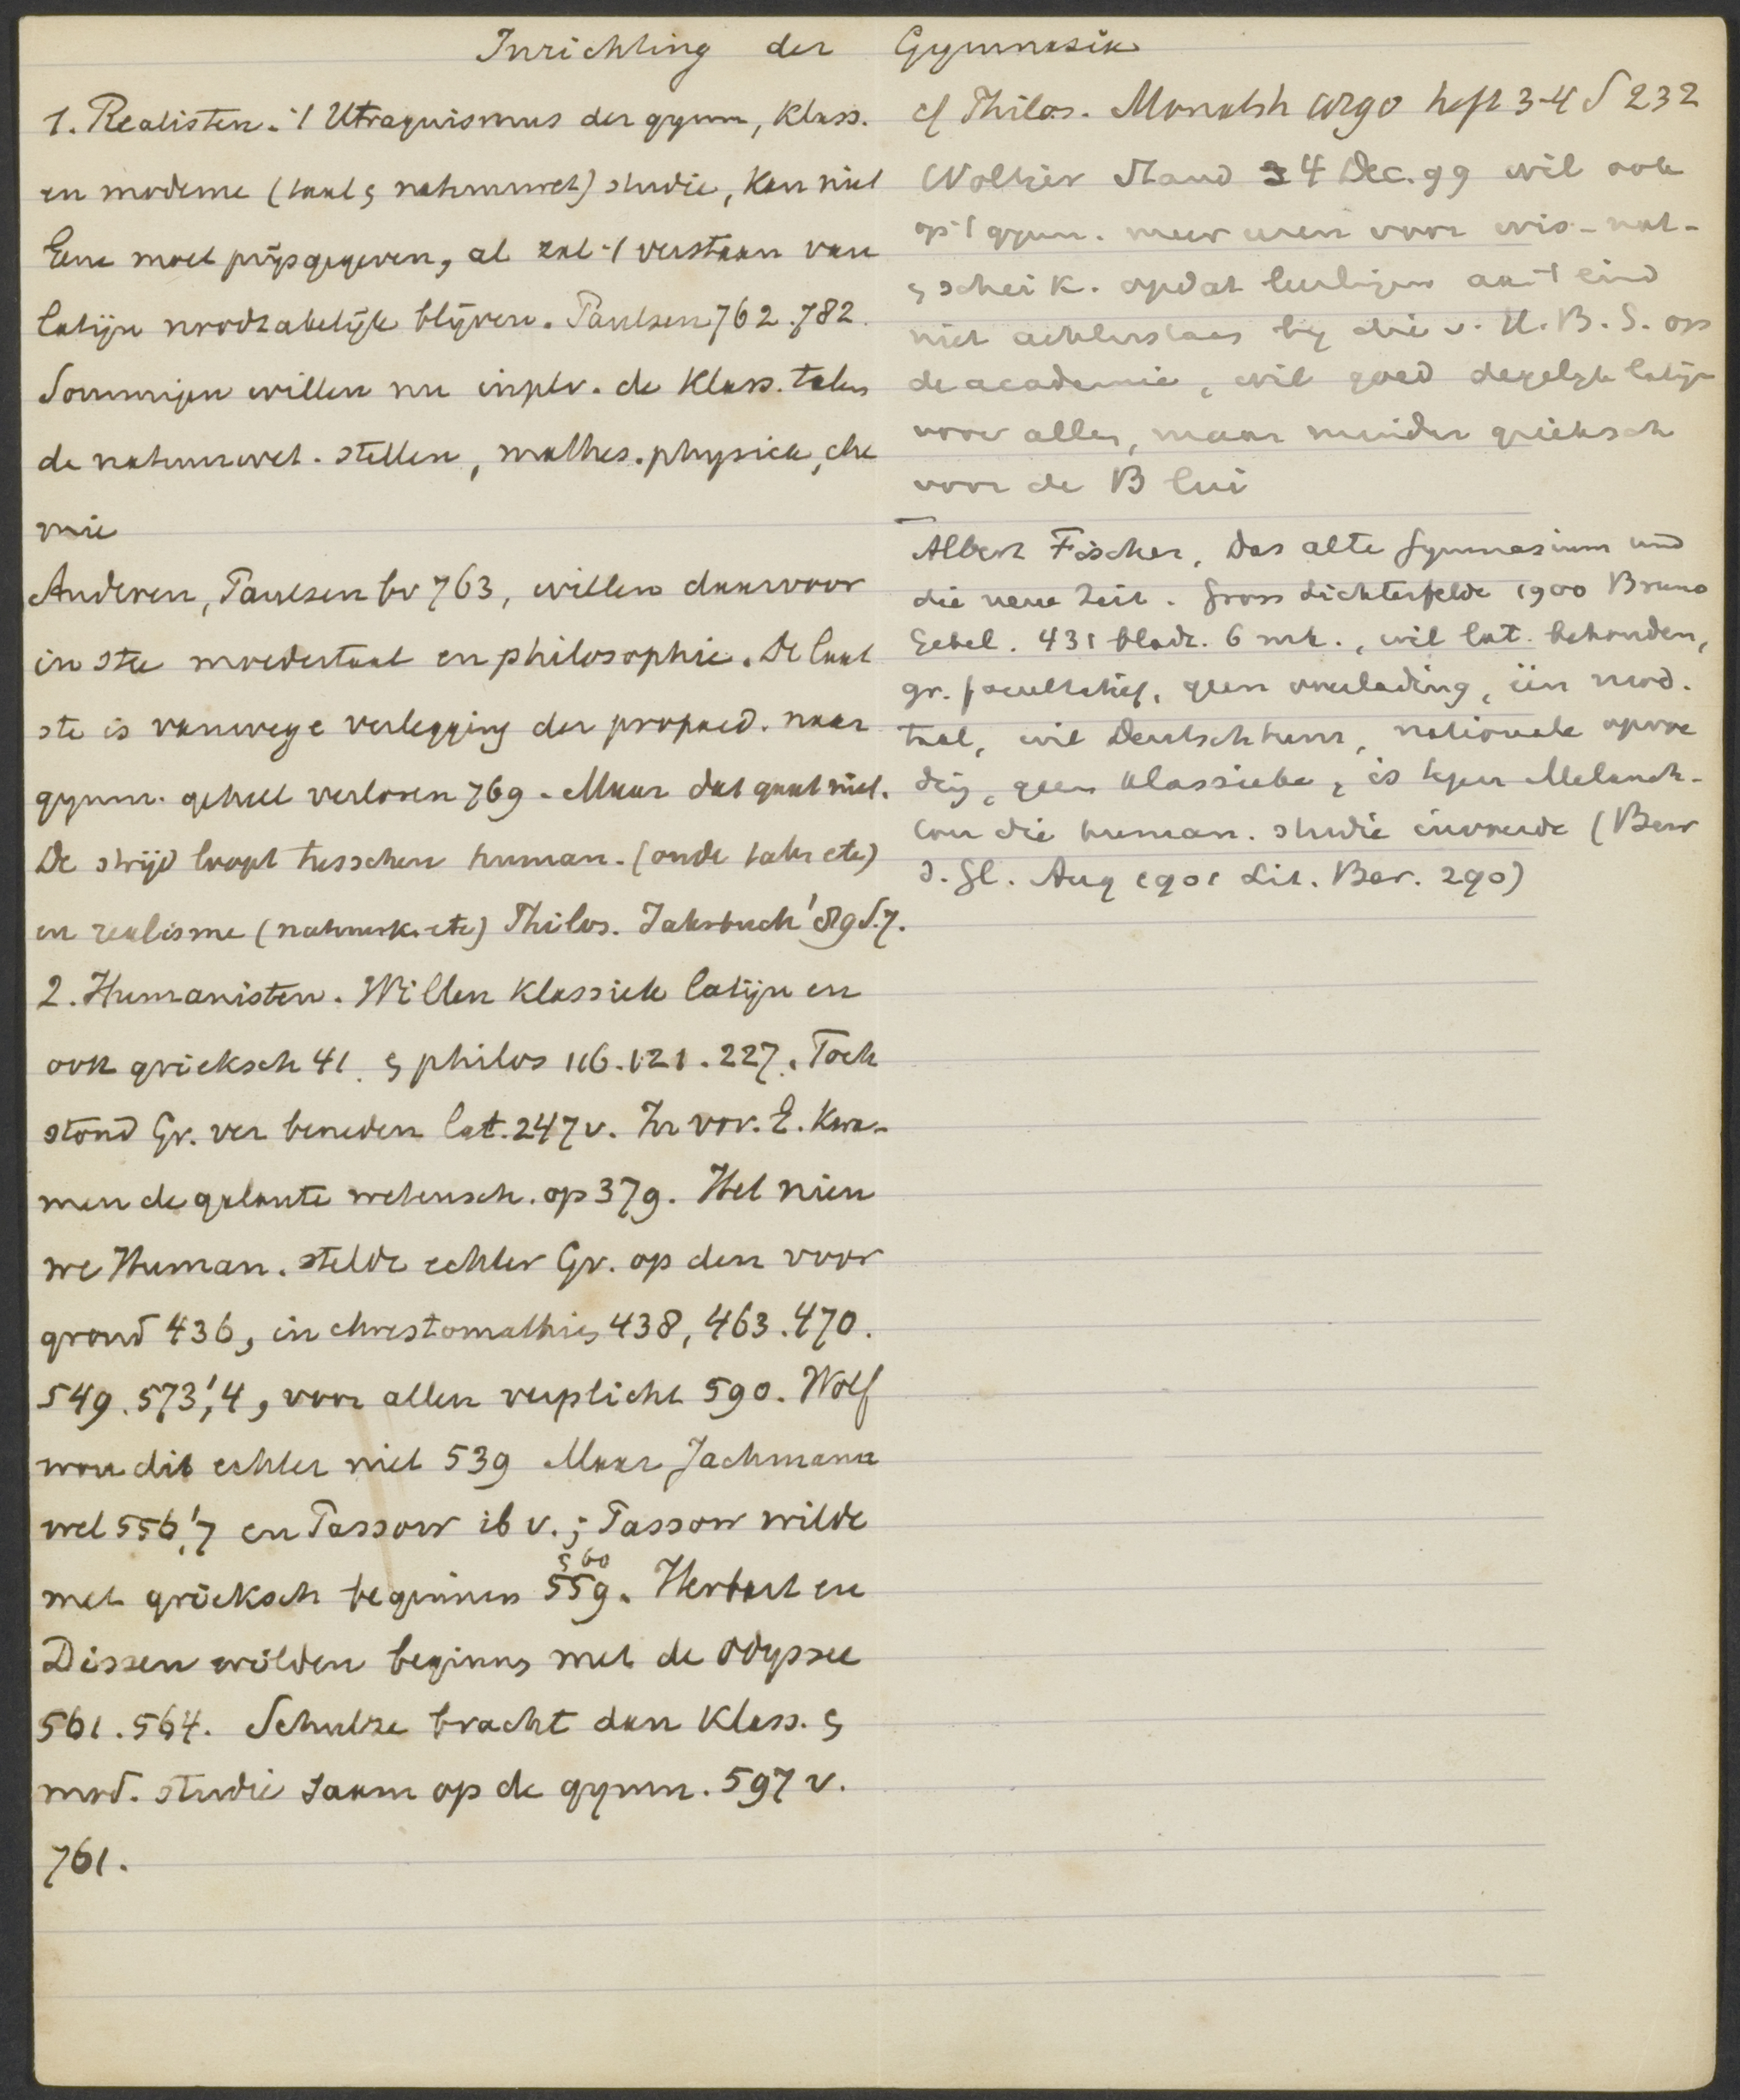 Inrichting der Gymnasia
1. Realisten. 't Utraquismus der gymn, klass.
en moderne (taal & natuurwet) studie, kan niet
Eene moet prijsgegeven, al zal 't verstaan van
latijn noodzakelijk blijven. Paulsen 762.782.
Sommigen willen nu inplv. de klass. talen
de natuurwet. stellen, mathes. physica, che
mie
Anderen, Paulsen bv 763, willen daarvoor
in stee moedertaal en philosophie. De laat
ste is vanwege verlegging der propaed. naar
gymn. geheel verloren 769. Maar dat gaat niet.
De strijd loopt tusschen human. (oude talen etc)
en realisme (natuurk. etc) Philos. Jahrbuch '89 S.7.
2. Humanisten. Willen klassiek latijn en
ook grieksch 41. & philos 116.121.227. Toch
stond Gr. ver beneden lat. 247 v. In vor. E. kwa-
men de galante wetensch. op 379. Het nieu
we Human. stelde echter Gr. op den voor
grond 436, in chrestomathies 438, 463.470.
549.573,'4, voor allen verplicht 590. Wolf
wou dit echter niet 539 Maar Jachmann
wel 556,'7 en Passow ib v.; Passow wilde
met grieksch beginnen 559. 560 Herbart en
Dissen wilden beginnen met de Odyssee
561.564. Schulze bracht dan klass. &
mod. studie saam op de gymn. 597 v.
761.
cf Philos. Monatsh 1890 heft 3-4 S 232
Woltjer Stand 4 Dec. 99 wil ook
op 't gymn. meer uren voor wis- nat-
& scheik. opdat leerlingen aan 't eind
niet achterstaan bij die v. H.B.S. op
de academie, wil goed degelijk latijn
voor allen, maar minder grieksch
voor de B lui
Albert Fischer, Das alte Gymnasium und
die neue Zeit. Gross Lichterfelde 1900 Bruno
Gebel. 431 bladz. 6 mk., wil lat. behouden,
gr. facultatief, geen overlading, één mod.
taal, wil Deutschtum, nationale opvoe
ding, geen klassieke, is tegen Melanch-
ton die human. studie invoerde (Bew
d. Gl. Aug 1901 Lit. Ber. 290)